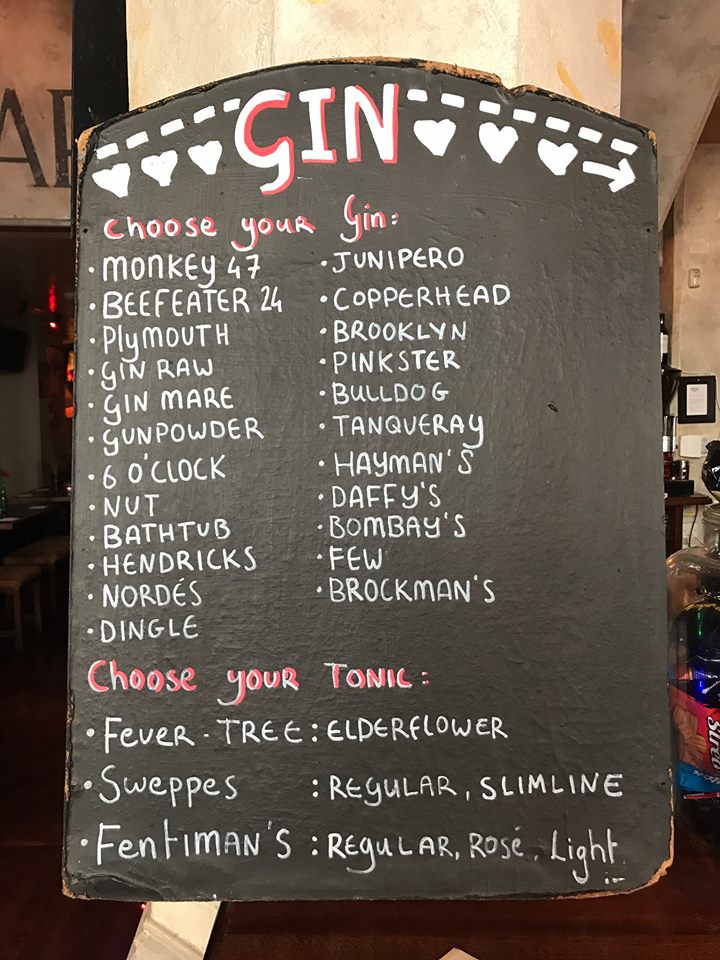 GIN
Choose your Gin:
· MONKEY 47
· BEEFEATER 24
· PlyMOUTH
· GIN RAW
· GIN MARE
· GUNPOWDER
· 6 O'CLOCK
· NUT
· BATHTUB
· HENDRICKS
· NORDÉS
· DINGLE
· JUNIPERO
· COPPERHEAD
· BROOKLYN
· PINKSTER
· BULLDOG
· TANQUERAY
· HAYMAN'S
· DAFFY'S
· BOMBAY'S
· FEW
· BROCKMAN'S
Choose your TONIC:
· Fever-TREE : ELDERFLOWER
· Sweppes : REGULAR, SLIMLINE
· FentIMAN'S : REGULAR, Rosé, Light